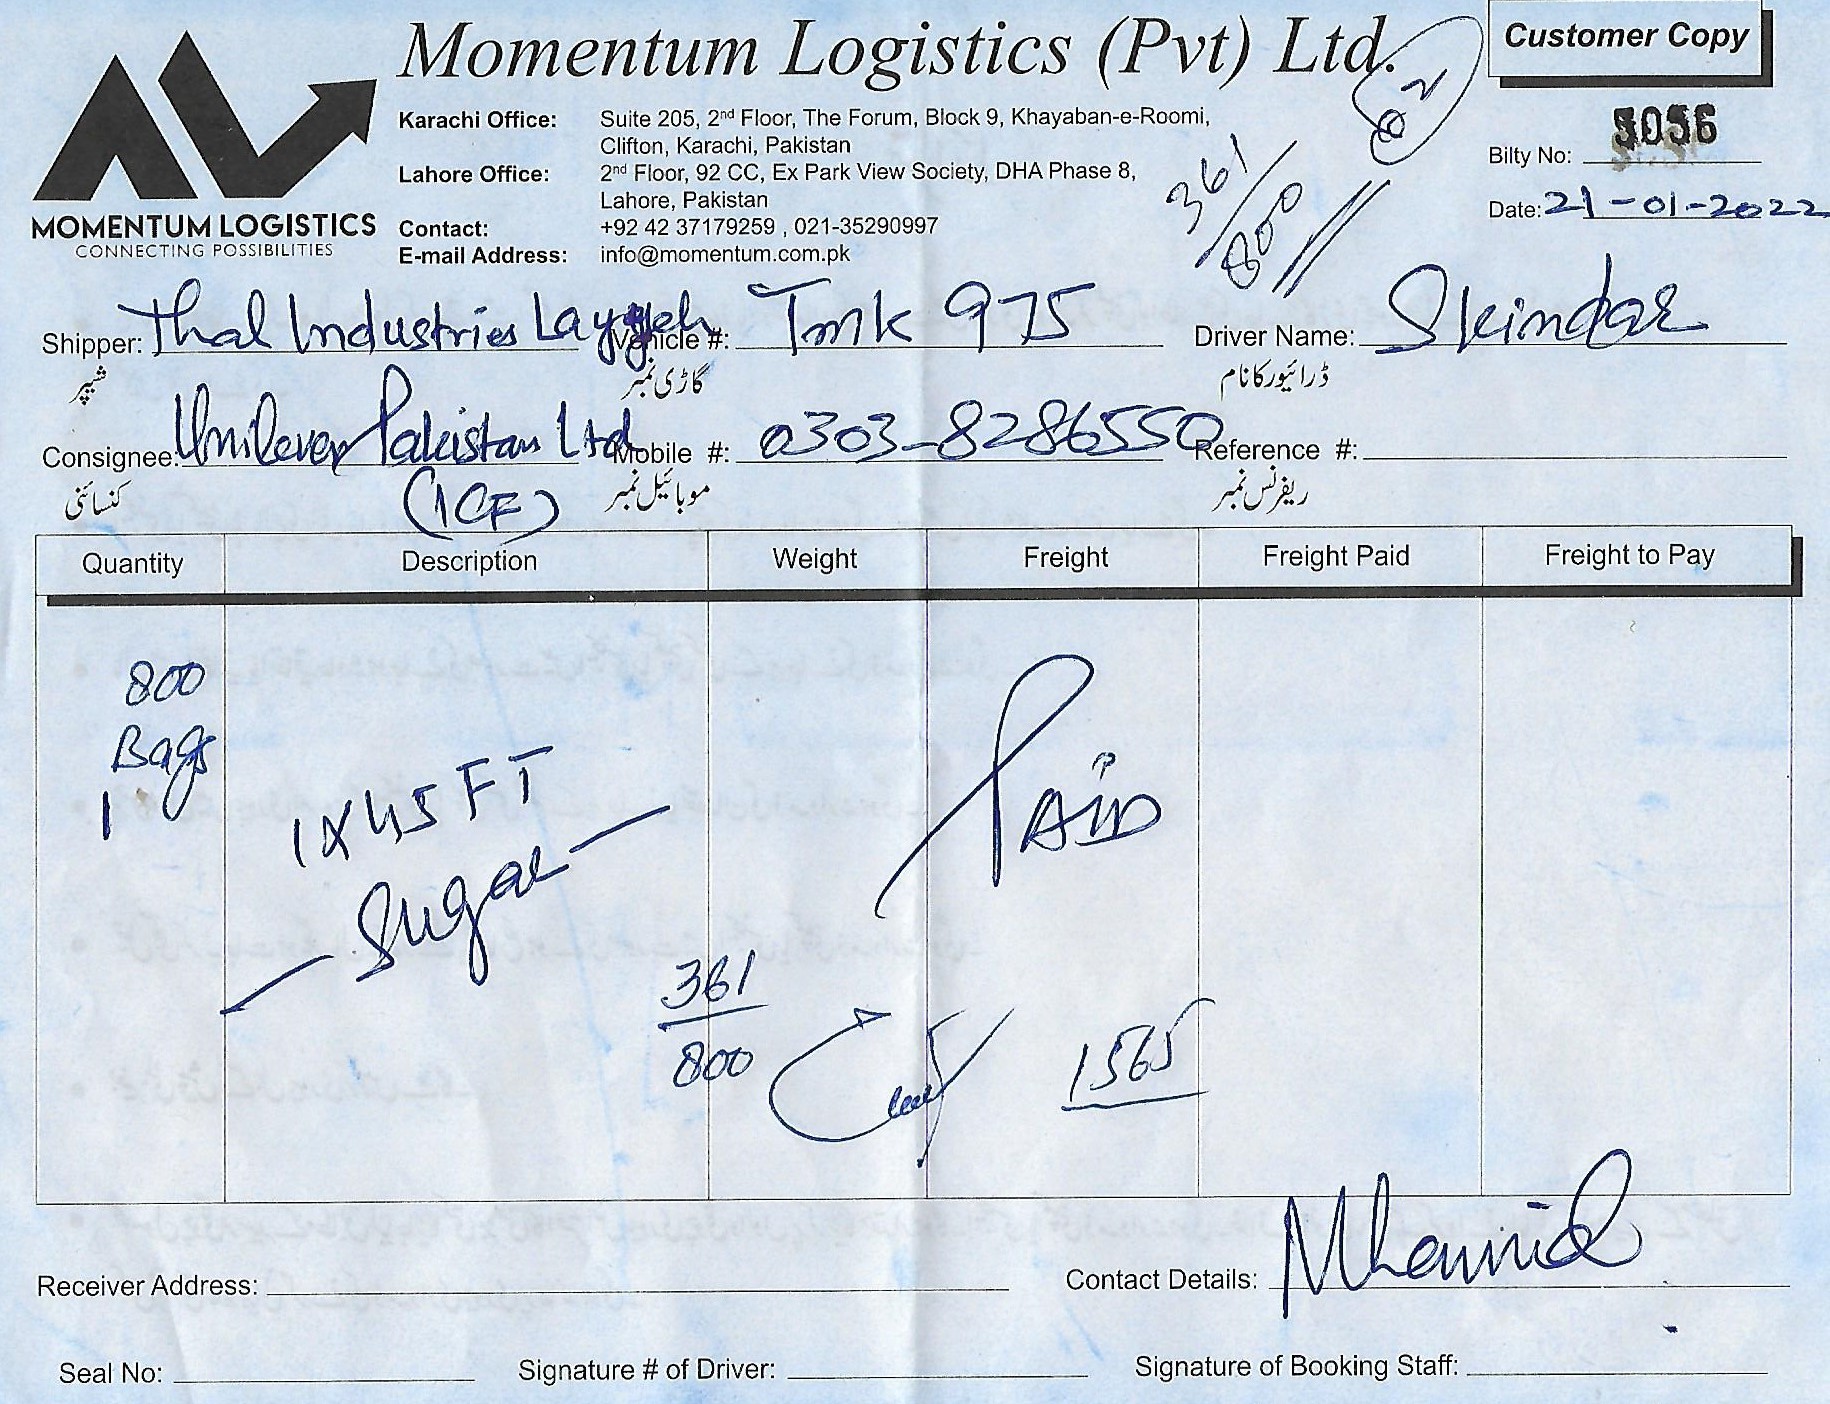 Momentum Logistics (Pvt) Ltd.
Customer Copy
MOMENTUM LOGISTICS
CONNECTING POSSIBILITIES
Karachi Office: Suite 205, 2nd Floor, The Forum, Block 9, Khayaban-e-Roomi,
Clifton, Karachi, Pakistan
Lahore Office: 2nd Floor, 92 CC, Ex Park View Society, DHA Phase 8,
Lahore, Pakistan
Contact: +92 42 37179259 , 021-35290997
E-mail Address: info@momentum.com.pk
62
361/800
Bilty No: 5056
Date: 21-01-2022
Shipper: Thal Industries Layyah Vehicle #: TMK 975 Driver Name: Skindar
شپپر گاڑی نمبر ڈرائیور کا نام
Consignee: Unilever Pakistan Ltd Mobile #: 0303-8286550 Reference #:
کنسائنی (ICF) موبائیل نمبر ریفرنس نمبر
Quantity Description Weight Freight Freight Paid Freight to Pay
800
Bags
1
1X45 FT
Sugar
PAID
361
800
1565
Receiver Address: Contact Details: M Hamid
Seal No: Signature # of Driver: Signature of Booking Staff: